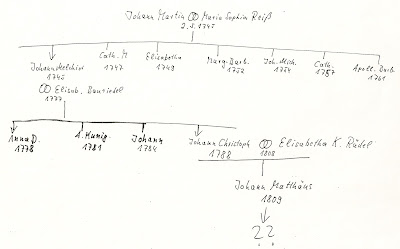 Johann Martin ⚭ Maria Sophia Reiß
2.5.1745
Johann Melchior
1745
Cath. M
1747
Elisabetha
1749
Marg. Barb.
1752
Joh. Mich.
1754
Cath.
1757
Apoll. Barb.
1761
⚭ Elisab.
1777
Anna D.
1778
A. Kunig.
1781
Johann
1784
Johann Christoph
1788
⚭ Elisabetha K. Rüdel
1808
Johann Matthäus
1809
??